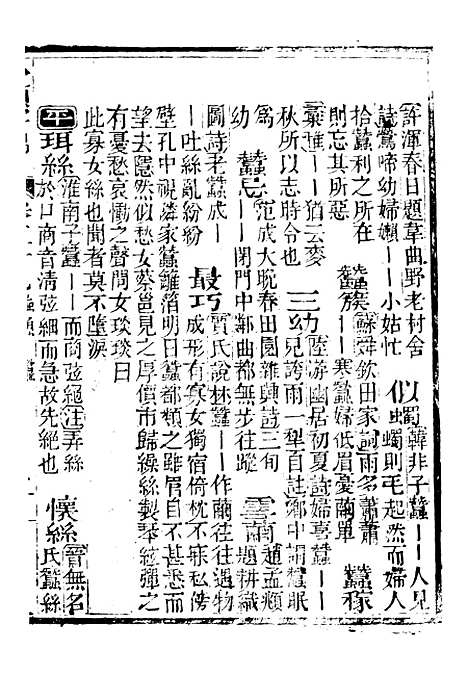 許渾春日題韋曲野老村舍
詩鶯啼幼婦嬾——小姑忙
似蠋
韓非子蠶——人見
蠋則毛起然而婦人
拾蠶利之所在
則忘其所惡
蠶簇
蘇舜欽田家詞雨多蕭蕭
——寒蠶婦低眉憂繭單
蠶稼
彙雅——猶云麥
秋所以志時令也
三幼
陸游幽居初夏詩婦喜蠶——
兒誇雨一犁 鄉中 眠
爲
幼
蠶忌
范成大晚春田園雜興詩三旬
——閉門中鄰曲都無步往蹤
雲南
趙孟頫
題耕織
圖詩老蠶成—
—吐絲亂紛紛
最巧
賈氏說林蠶——作繭往往遇物
成形有寡女獨宿倚枕不寐私傍
壁孔中視隣家蠶離箔明日蠶都類之雖眉目不甚悉而
望去隱然似愁女蔡邕見之厚價市歸繅絲製琴絃彈之
有憂愁哀慟之聲問女琰琰曰
此寡女絲也聞者莫不墮淚
平
珥絲
淮南子蠶——而商弦絕注弄絲
於口商音清弦細而急故先絕也
懷絲
晉無名
氏蠶絲